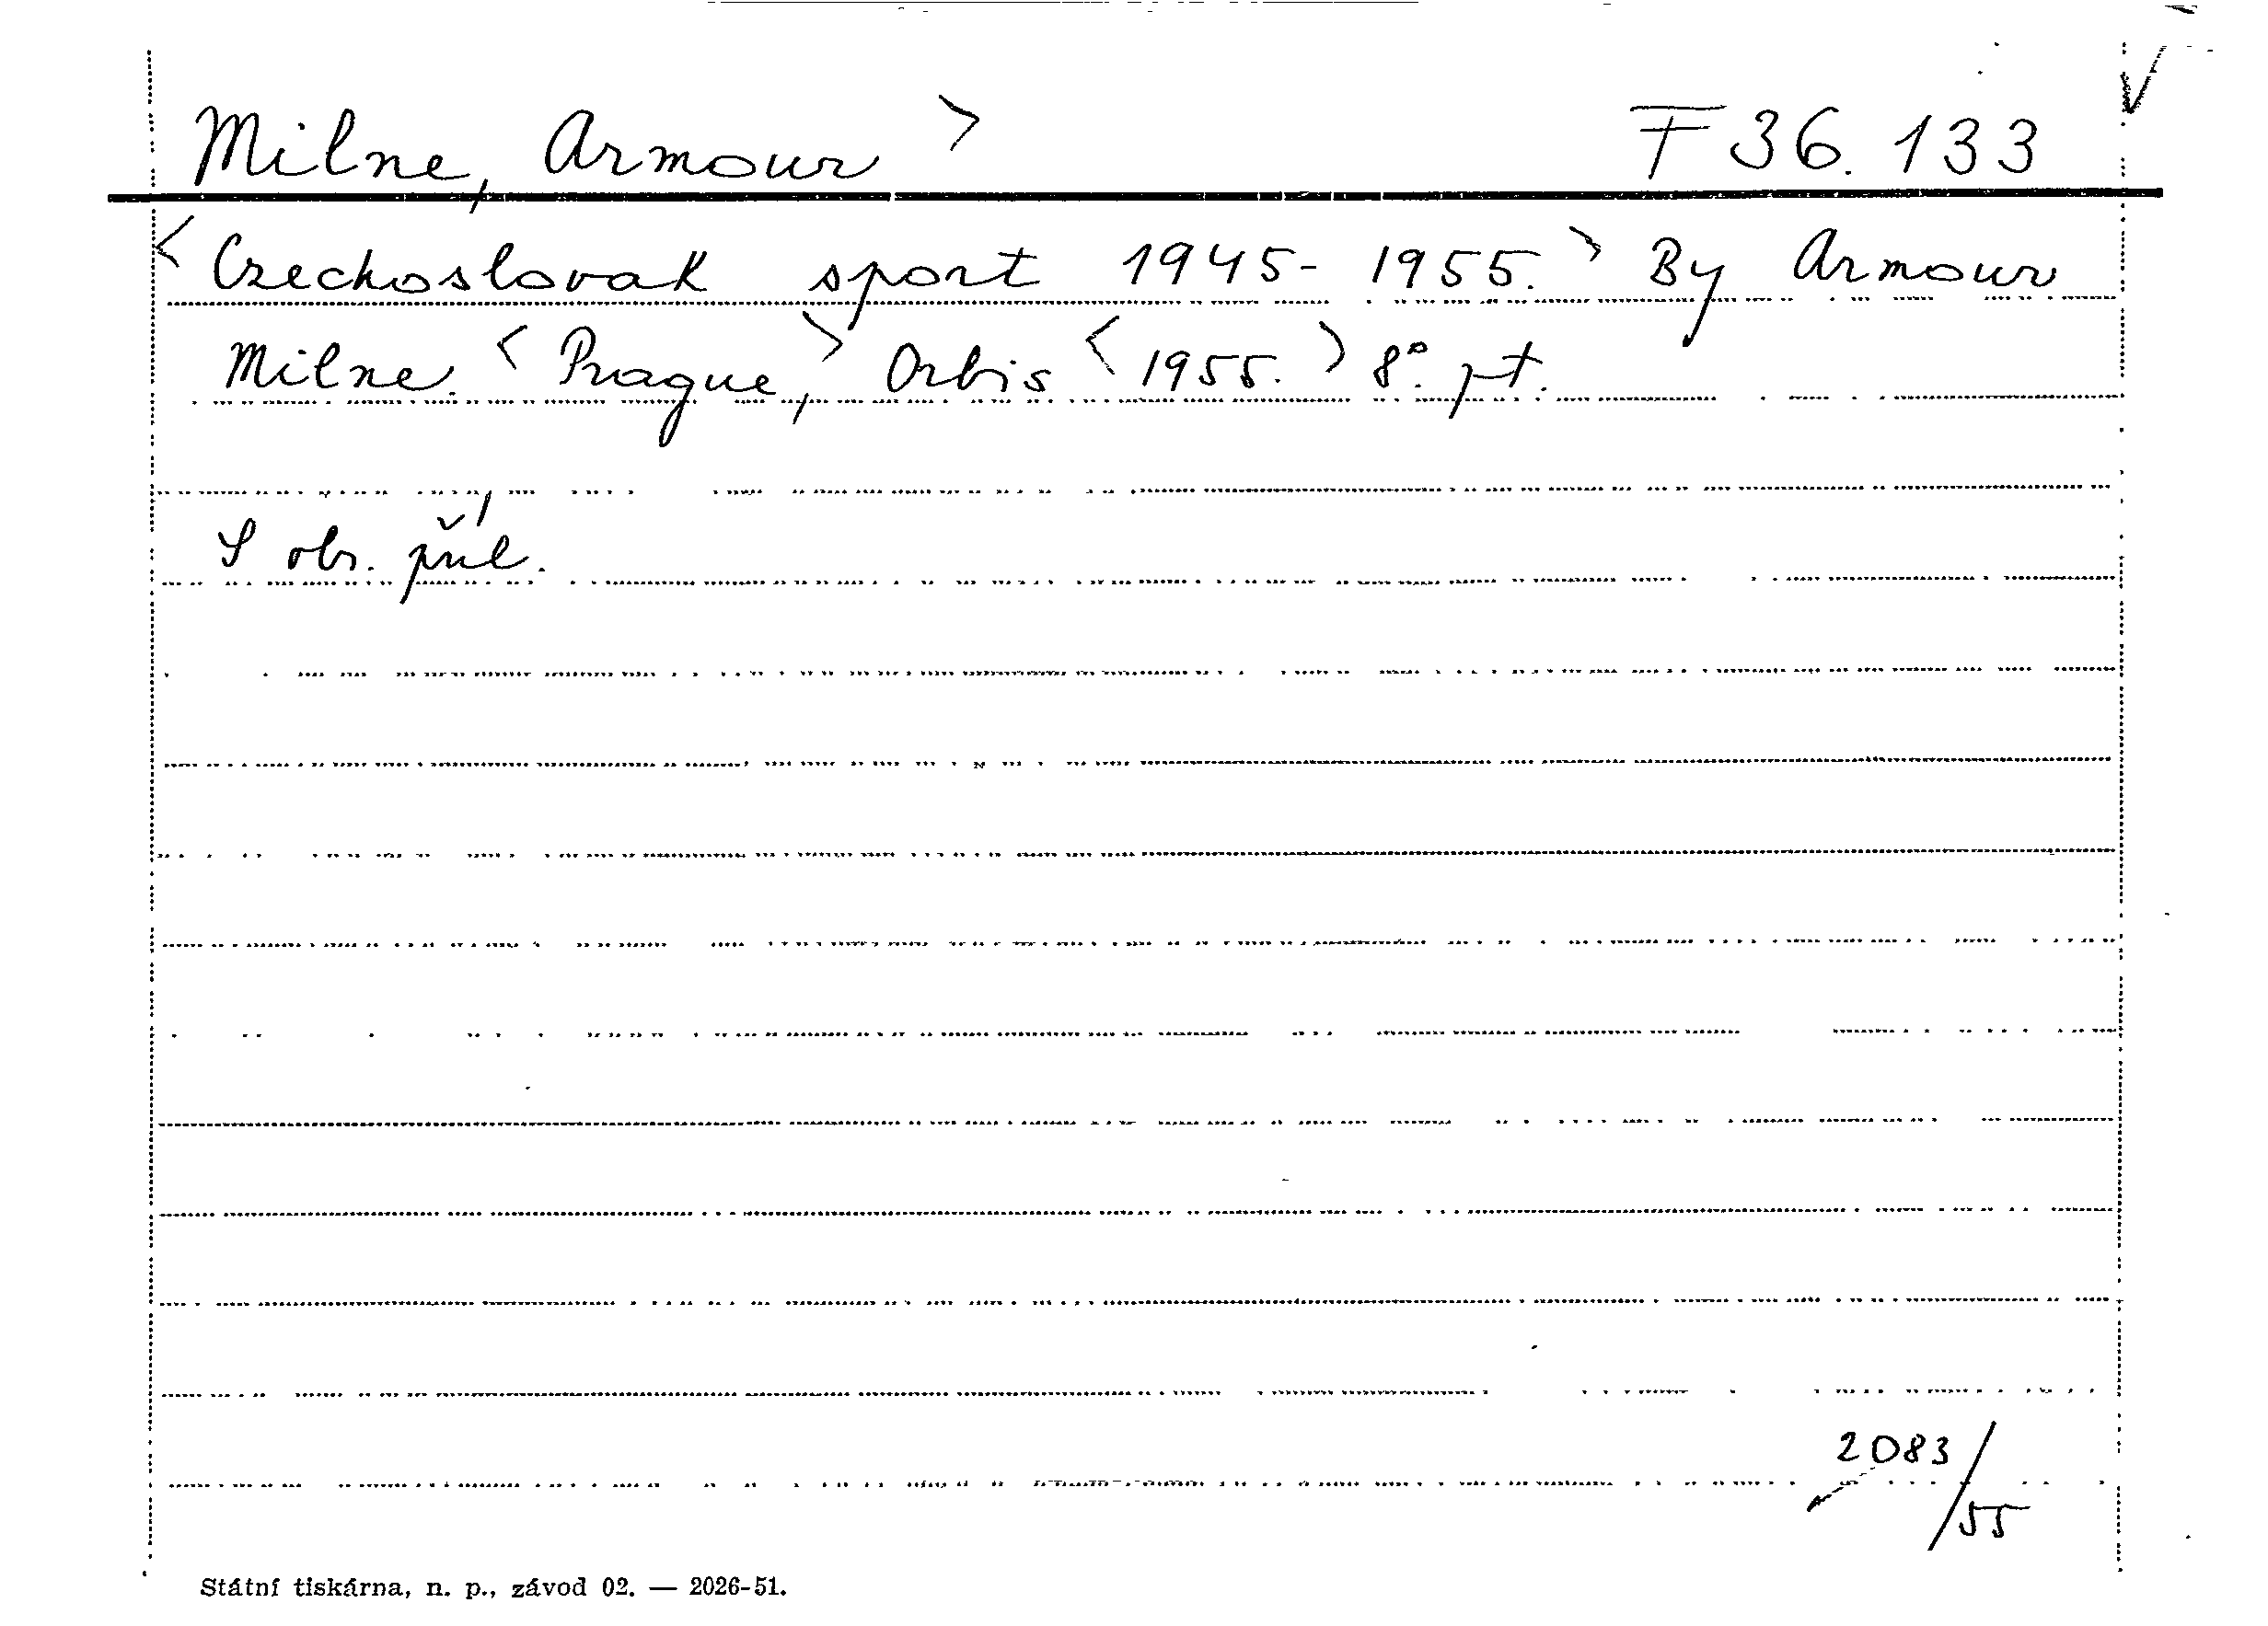 Milne, Armour > F 36.133
< Czechoslovak sport 1945-1955. > By Armour
Milne. < Prague, > Orbis < 1955. > 8°. pt.
S obr. příl.
2083/55
Státní tiskárna, n. p., závod 02. — 2026-51.